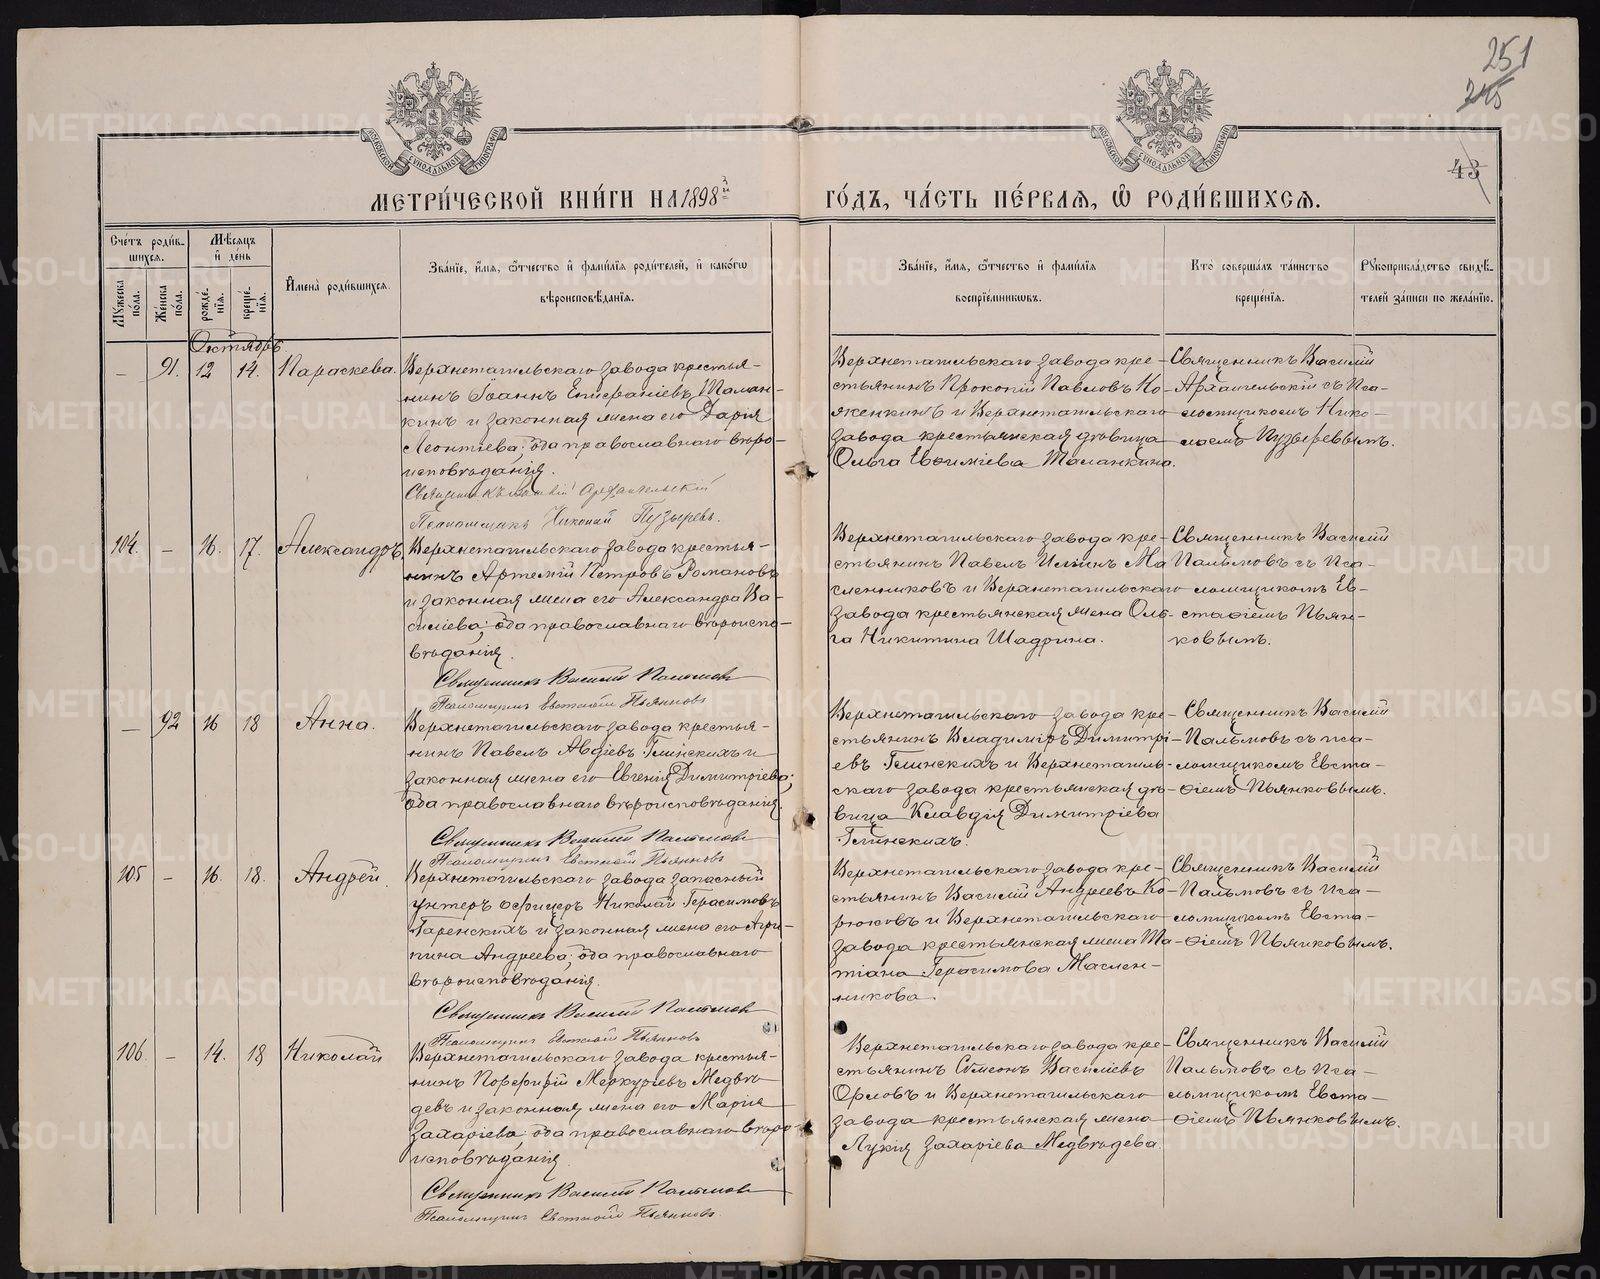 251
245
43
МОСКОВСКОЙ СѴНОДАЛЬНОЙ ТИПОГРАФІИ
МОСКОВСКОЙ СѴНОДАЛЬНОЙ ТИПОГРАФІИ
МЕТРИ́ЧЕСКОЙ КНИ́ГИ НА 1898й ГО́ДЪ, ЧА́СТЬ ПЕ́РВАѦ, Ѡ РОДИ́ВШИХСѦ.
Сче́тъ роди́в-
шихсѧ.
Мѣ́сѧцъ
и де́нь
Мꙋжеска по́ла.
Же́нска по́ла.
рожде́-
нїѧ.
креще́-
нїѧ.
Имена̀ роди́вшихсѧ.
Зва́нїе, и́мѧ, ѻ́тчество и фами́лїѧ роди́телей, и како́гѡ
вѣроисповѣ́данїѧ.
Зва́нїе, и́мѧ, ѻ́тчество и фами́лїѧ
воспрїе́мникѡвъ.
Кто̀ соверша́лъ та́инство
креще́нїѧ.
Рꙋкоприкла́дство свидѣ́-
телей за́писи по жела́нїю.
Октябрь
— 91. 12 14. Параскева.
Верхнетагильскаго завода крестья-
нинъ Іоаннъ Епифаніевъ Талан-
кинъ и законная жена его Дарія
Леонтіева; оба православнаго вѣро-
исповѣданія.
Священникъ Василій Архангельскій
Псаломщикъ Николай Пузыревъ.
Верхнетагильскаго завода кре-
стьянинъ Прокопій Павловъ Ко-
якенкинъ и Верхнетагильскаго
завода крестьянская дѣвица
Ольга Евѳиміева Таланкина.
Священникъ Василій
Архангельскій съ Пса-
ломщикомъ Нико-
лаемъ Пузыревымъ.
104. — 16. 17. Александръ
Верхнетагильскаго завода крестья-
нинъ Артемій Петровъ Романовъ
и законная жена его Александра Ва-
силіева; оба православнаго вѣроиспо-
вѣданія.
Священникъ Василій Пальмовъ
Псаломщикъ Евстаѳій Пьянковъ
Верхнетагильскаго завода кре-
стьянинъ Павелъ Ильинъ Ма-
сленниковъ и Верхнетагильскаго
завода крестьянская жена Оль-
га Никитина Шадрина.
Священникъ Василій
Пальмовъ съ Пса-
ломщикомъ Ев-
стаѳіемъ Пьян-
ковымъ.
— 92 16 18 Анна.
Верхнетагильскаго завода крестья-
нинъ Павелъ Авдіевъ Глинскихъ и
законная жена его Евгенія Димитріева;
оба православнаго вѣроисповѣданія.
Священникъ Василій Пальмовъ
Псаломщикъ Евстаѳій Пьянковъ
Верхнетагильскаго завода кре-
стьянинъ Владиміръ Димитрі-
евъ Глинскихъ и Верхнетагиль-
скаго завода крестьянская дѣ-
вица Клавдія Димитріева
Глинскихъ.
Священникъ Василій
Пальмовъ съ Пса-
ломщикомъ Евста-
ѳіемъ Пьянковымъ.
105 — 16. 18. Андрей.
Верхнетагильскаго завода запасный
унтеръ офицеръ Николай Герасимовъ
Гаренскихъ и законная жена его Агри-
пина Андреева; оба православнаго
вѣроисповѣданія.
Священникъ Василій Пальмовъ
Псаломщикъ Евстаѳій Пьянковъ
Верхнетагильскаго завода кре-
стьянинъ Василій Андреевъ Ко-
рюковъ и Верхнетагильскаго
завода крестьянская жена Та-
тіана Герасимова Маслен-
никова.
Священникъ Василій
Пальмовъ съ Пса-
ломщикомъ Евста-
ѳіемъ Пьянковымъ.
106. — 14. 18 Николай
Верхнетагильскаго завода крестья-
нинъ Порфирій Меркурьевъ Медвѣ-
девъ и законная жена его Марія
Захаріева; оба православнаго вѣро-
исповѣданія.
Священникъ Василій Пальмовъ
Псаломщикъ Евстаѳій Пьянковъ.
Верхнетагильскаго завода кре-
стьянинъ Сѵмеонъ Василіевъ
Орловъ и Верхнетагильскаго
завода крестьянская жена
Лукія Захаріева Медвѣдева
Священникъ Василій
Пальмовъ съ Пса-
ломщикомъ Евста-
ѳіемъ Пьянковымъ.
METRIKI.GASO-URAL.RU